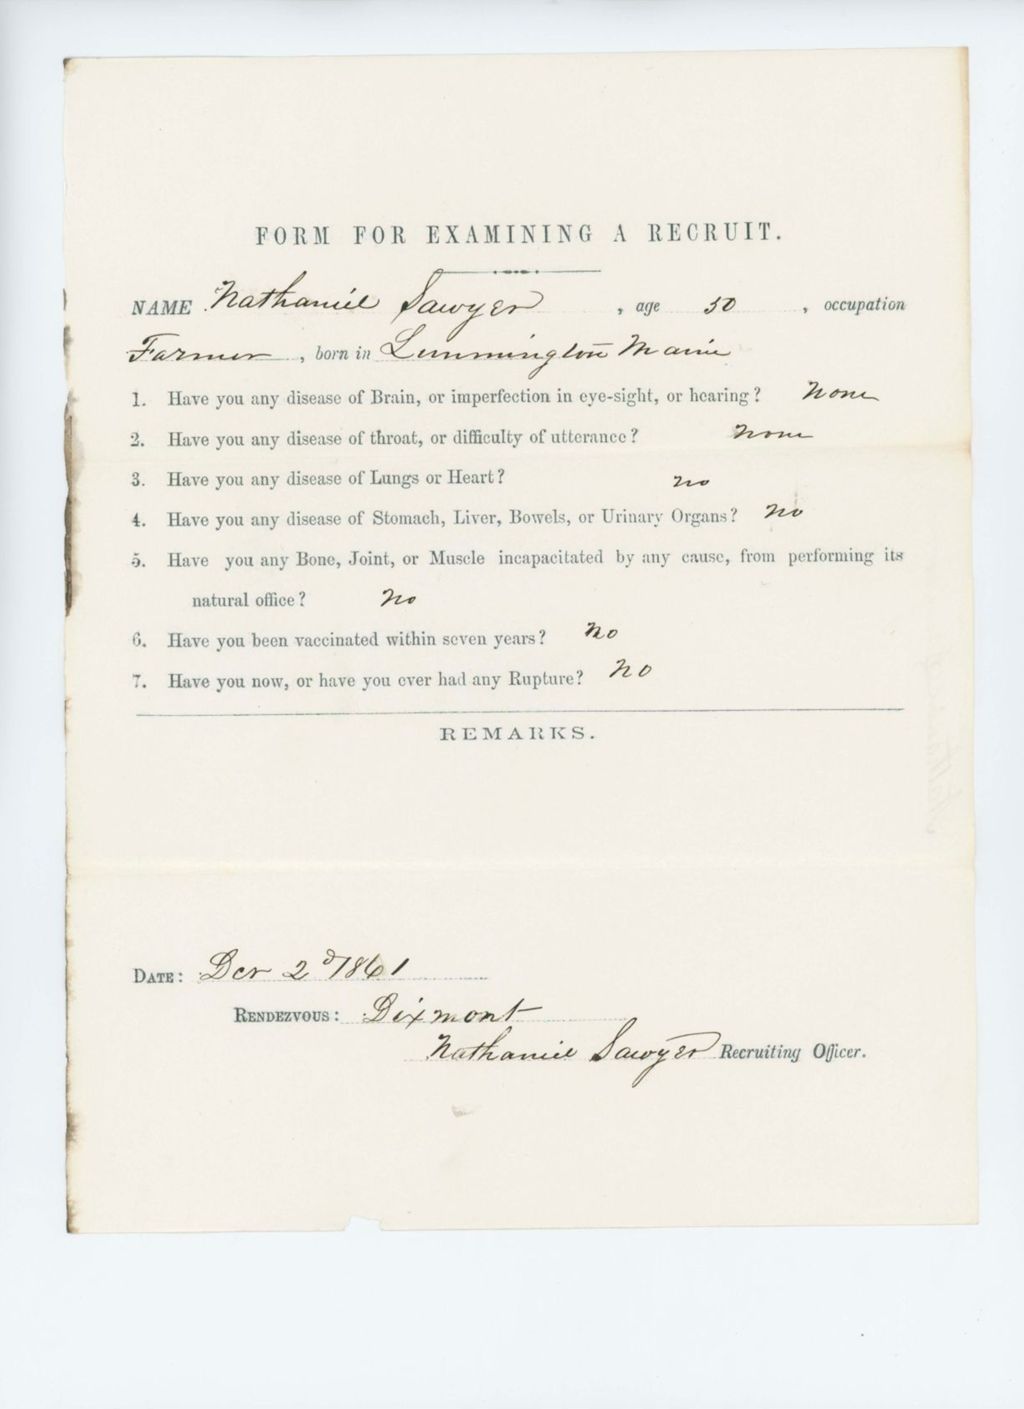 FORM FOR EXAMINING A RECRUIT.
NAME Nathaniel Sawyer, age 50, occupation
Farmer, born in Lemmington Maine
1. Have you any disease of Brain, or imperfection in eye-sight, or hearing? None
2. Have you any disease of throat, or difficulty of utterance? None
3. Have you any disease of Lungs or Heart? No
4. Have you any disease of Stomach, Liver, Bowels, or Urinary Organs? No
5. Have you any Bone, Joint, or Muscle incapacitated by any cause, from performing its
natural office? No
6. Have you been vaccinated within seven years? No
7. Have you now, or have you ever had any Rupture? No
REMARKS.
DATE: Dec 2d 1861
RENDEZVOUS: Dixmont
Nathaniel Sawyer Recruiting Officer.